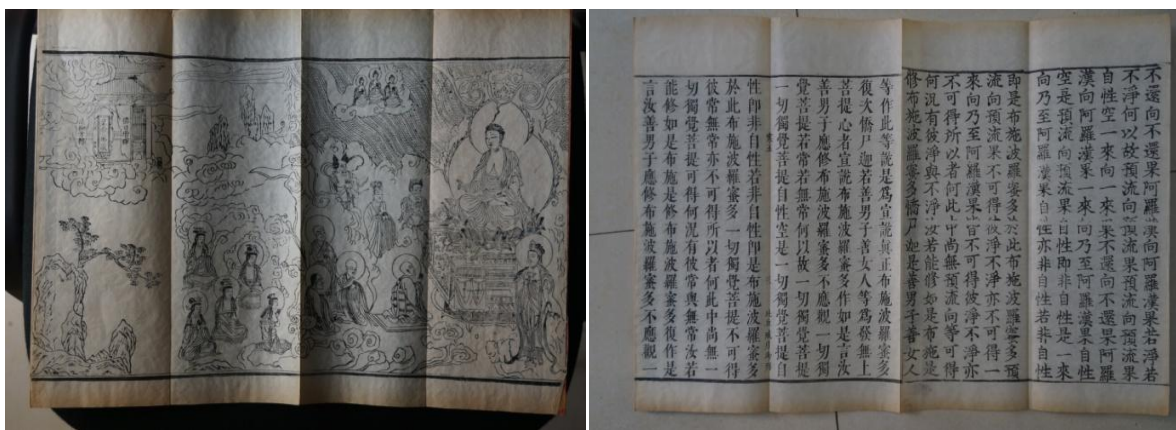 不還向不還果阿羅漢向阿羅漢果若淨若
不淨何以故預流向預流果預流向預流果
自性空一來向一來果不還向不還果阿羅
漢向阿羅漢果一來向乃至阿羅漢果自性
空是預流向預流果自性即非自性是一來
向乃至阿羅漢果自性亦非自性若非自性
即是布施波羅蜜多於此布施波羅蜜多預
流向預流果不可得彼淨不淨亦不可得一
來向乃至阿羅漢果皆不可得彼淨不淨亦
不可得所以者何此中尚無預流向等可得
何況有彼淨與不淨汝若能修如是布施是
修布施波羅蜜多憍尸迦是善男子善女人
等作此等說是為宣說真正布施波羅蜜多
復次憍尸迦若善男子善女人等為發無上
菩提心者宣說布施波羅蜜多作如是言汝
善男子應修布施波羅蜜多不應觀一切獨
覺菩提若常若無常何以故一切獨覺菩提
一切獨覺菩提自性空是一切獨覺菩提自
性即非自性若非自性即是布施波羅蜜多
於此布施波羅蜜多一切獨覺菩提不可得
彼常無常亦不可得所以者何此中尚無一
切獨覺菩提可得何況有彼常與無常汝若
能修如是布施是修布施波羅蜜多復作是
言汝善男子應修布施波羅蜜多不應觀一